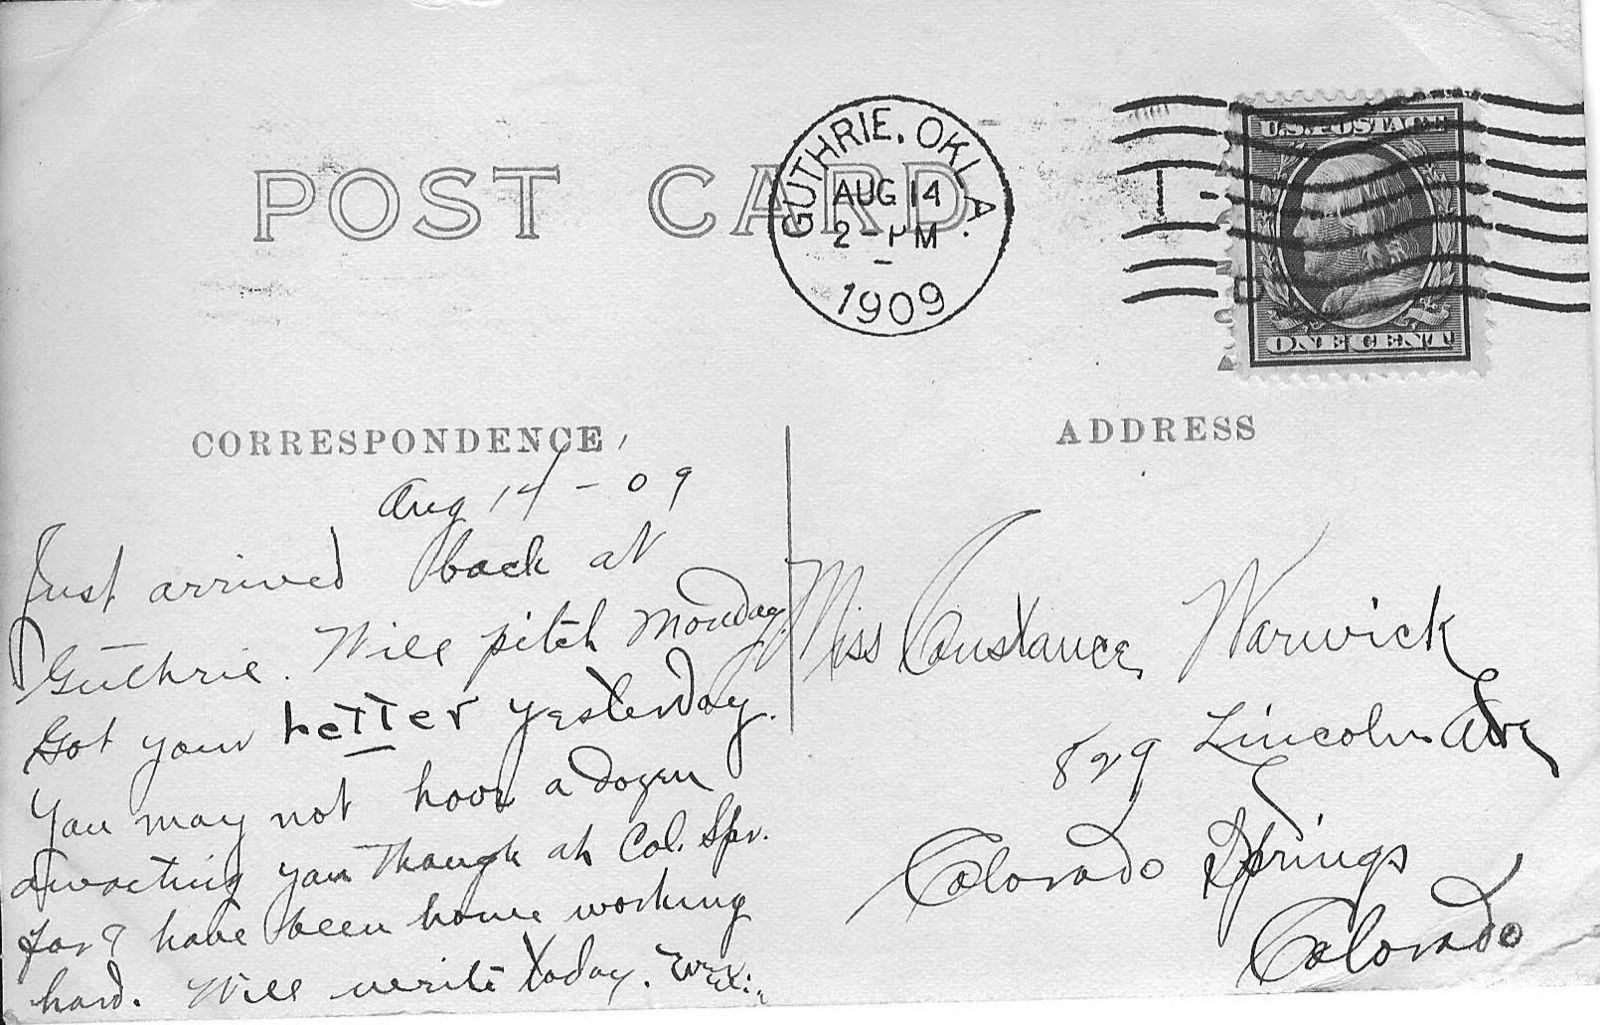 POST CARD
GUTHRIE, OKLA.
AUG 14
2 - PM
1909
U.S. POSTAGE
ONE CENT
CORRESPONDENCE
Aug 14 - 09
Just arrived back at
Guthrie. Will pitch Monday.
Got your Letter yesterday.
You may not have a dozen
awaiting you though at Col. Spr.
for I have been home working
hard. Will write today.
ADDRESS
Miss Constance Warwick
829 Lincoln Ave
Colorado Springs
Colorado